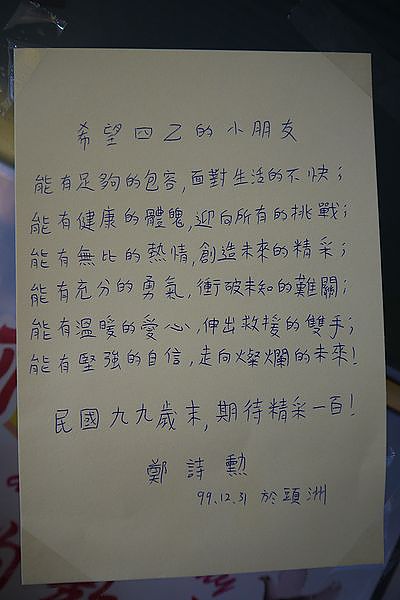 希望四乙的小朋友
能有足夠的包容,面對生活的不快;
能有健康的體魄,迎向所有的挑戰;
能有無比的熱情,創造未來的精采;
能有充分的勇氣,衝破未知的難關;
能有溫暖的愛心,伸出救援的雙手;
能有堅強的自信,走向燦爛的未來!
民國九九歲末,期待精采一百!
鄭詩勳
99.12.31 於頭洲